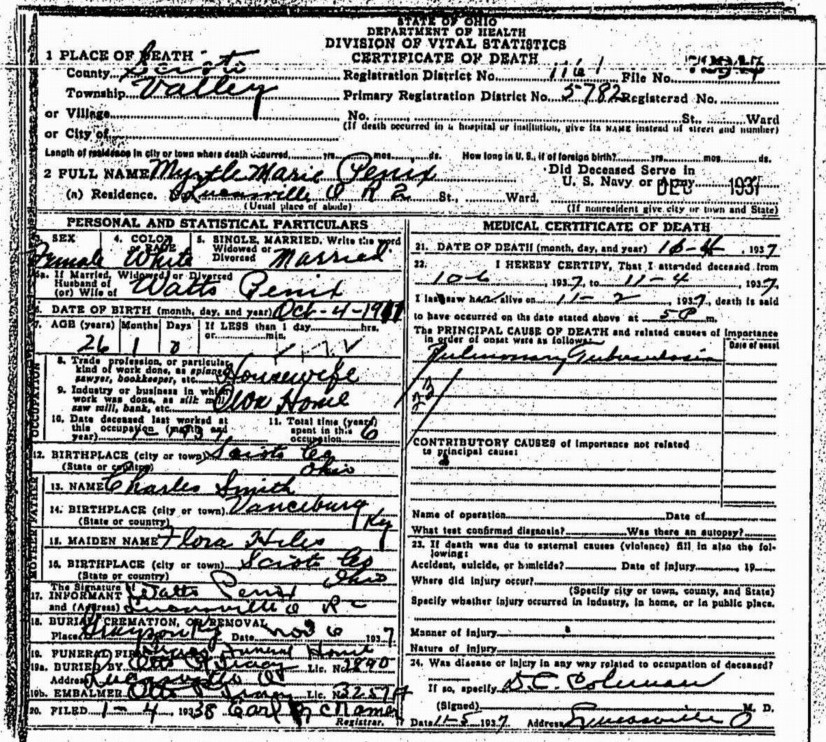 STATE OF OHIO
DEPARTMENT OF HEALTH
DIVISION OF VITAL STATISTICS
CERTIFICATE OF DEATH
1 PLACE OF DEATH
County Scioto Registration District No. 1161 File No.
Township Valley Primary Registration District No. 5782 Registered No.
or Village No. St., Ward
or City of (If death occurred in a hospital or institution, give its NAME instead of street and number)
Length of residence in city or town where death occurred, yrs. mos. ds. How long in U. S., if of foreign birth? yrs. mos. ds.
2 FULL NAME Myrtle Marie Penix Did Deceased Serve in
U. S. Navy or 1937
(a) Residence. Lucasville O R 2 St., Ward.
(Usual place of abode) (If nonresident give city or town and State)
PERSONAL AND STATISTICAL PARTICULARS
3. SEX 4. COLOR or RACE 5. SINGLE, MARRIED, Write the word
Widowed or
Divorced
Female White Married
5a. If Married, Widowed or Divorced
Husband of
(or) Wife of Watts Penix
6. DATE OF BIRTH (month, day, and year) Oct-4-1911
7. AGE (years) Months Days If LESS than 1 day hrs.
or min.
26 1 0
8. Trade profession, or particular
kind of work done, as spinner,
sawyer, bookkeeper, etc. Housewife
9. Industry or business in which
work was done, as silk mill,
saw mill, bank, etc. Own Home
10. Date deceased last worked at
this occupation (month and
year)
11. Total time (years)
spent in this
occupation 6
12. BIRTHPLACE (city or town) Scioto Co
(State or country) Ohio
13. NAME Charles Smith
14. BIRTHPLACE (city or town) Vanceburg
(State or country) Ky
15. MAIDEN NAME Flora Hiles
16. BIRTHPLACE (city or town) Scioto Co
(State or country) Ohio
The Signature of
17. INFORMANT Watts Penix
and (Address) Lucasville O R
18. BURIAL, CREMATION, OR REMOVAL
Place Grayson Ky Date Nov 6 1937
19. FUNERAL FIRM Funeral Home
19a. BURIED BY Otto Lic. No. 2890
Address Lucasville O
19b. EMBALMER Otto Lic. No. 3257A
20. FILED 1-4 1938 Carl McNamer
Registrar.
MEDICAL CERTIFICATE OF DEATH
21. DATE OF DEATH (month, day, and year) 4, 1937
22. I HEREBY CERTIFY, That I attended deceased from
10-6, 1937, to 11-4, 1937,
I last saw her alive on 11-2, 1937, death is said
to have occurred on the date stated above at 5 P m.
The PRINCIPAL CAUSE OF DEATH and related causes of importance
in order of onset were as follows: Date of onset
Pulmonary Tuberculosis
23
CONTRIBUTORY CAUSES of importance not related
to principal cause:
Name of operation Date of
What test confirmed diagnosis? Was there an autopsy?
23. If death was due to external causes (violence) fill in also the following:
Accident, suicide, or homicide? Date of injury, 19
Where did injury occur?
(Specify city or town, county, and State)
Specify whether injury occurred in industry, in home, or in public place.
Manner of injury
Nature of injury
24. Was disease or injury in any way related to occupation of deceased?
If so, specify
(Signed) D. C. Coleman M. D.
Date 11-5, 1937 Address Lucasville O
OCCUPATION
FATHER
MOTHER